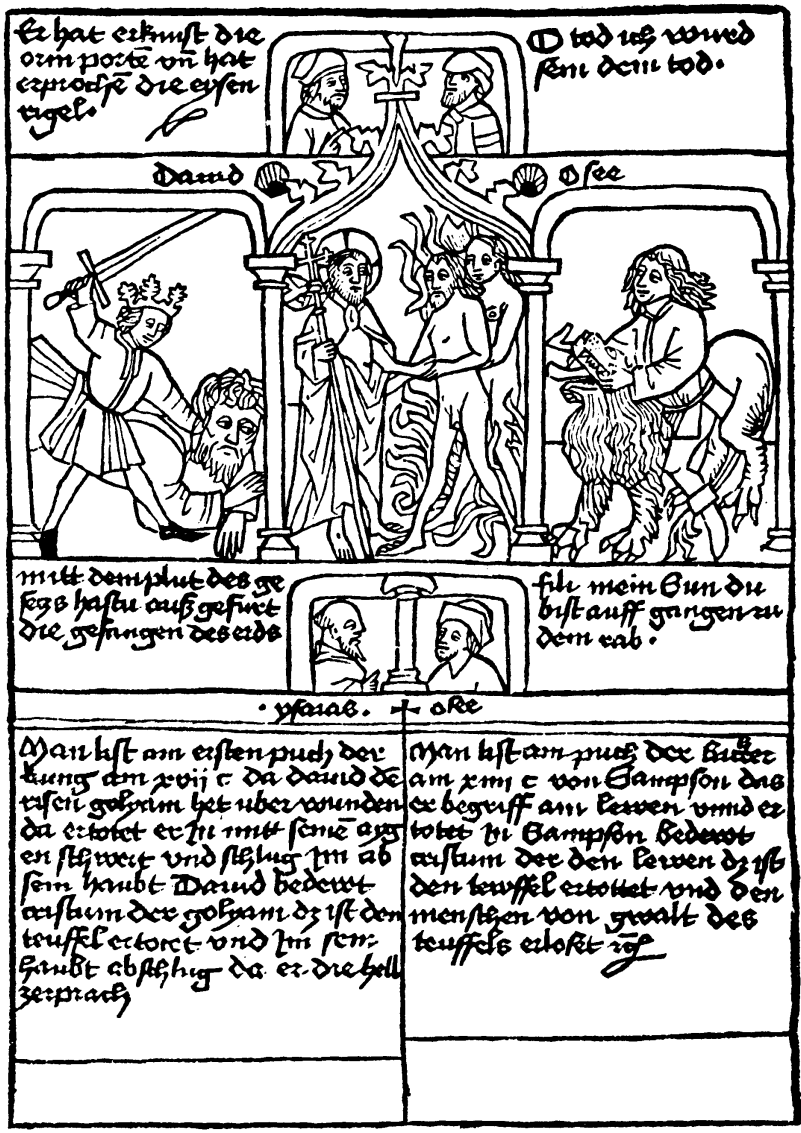 Er hat erknist die
orin porte᷑ vn̄ hat
erprochē die eysen
rigel.
O tod ich wurd
sein dein tod.
Dauid
Osee
mitt dem plut des ge
secz hastu auß gefurt
die gefangen des erds
fili mein Sun du
bist auff gangen zu
dem rab.
. ysaias. oze
Man list am ersten puch der
kung am xvii c da dauid dē
risen golyam het uber wunden
da ertotet er In mitt seinē ayg
en schwert vnd schlug Im ab
sein haubt Dauid bedewt
cristum der golyam dz ist den
teuffel ertotet vnd Im sein
haubt abschlug da er die hell
zerprach
Man list am puch der
am xiiii c von Sampson das
er begriff ain lewen vnnd er
totet In Sampson bedewt
cristum der den lewen dz ist
den tewffel ertottet vnd den
menschen von gwalt des
teuffels erlost